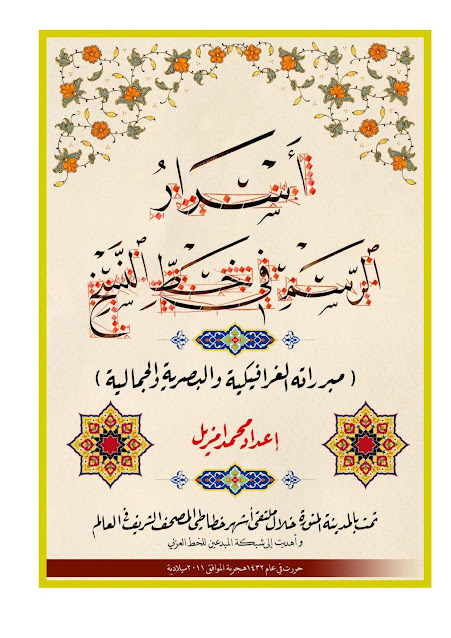 أَسْرَارُ
الرَّسْمِ في خَطِّ النَّسْخِ
( مبرراته الغرافيكية والبصرية والجمالية )
إعداد محمد امزيل
تمت بالمدينة المنورة خلال ملتقى أشهر خطاطي المصحف الشريف في العالم
و أهديت إلى شبكة المبدعين للخط العربي
حررت في عام ١٤٣٢هجرية الموافق ٢٠١١ميلادية